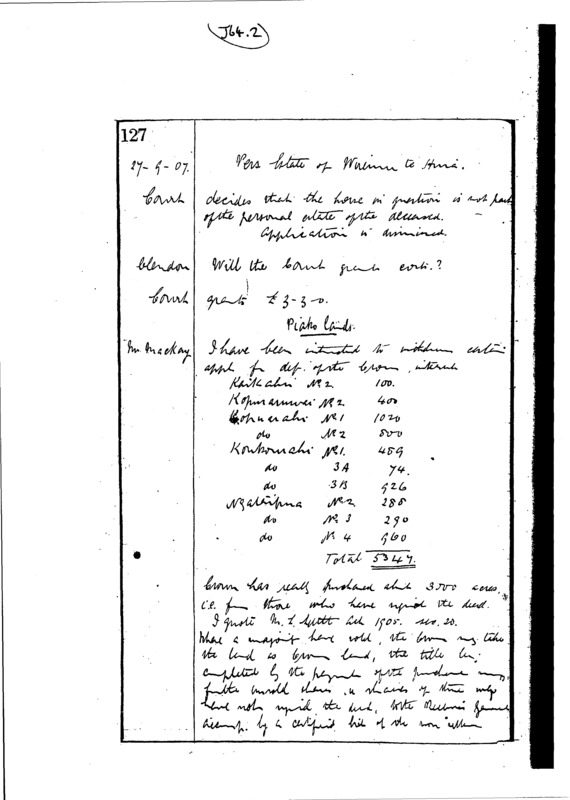 J64.2
127
27-9-07. Pers Estate of Wiremu te Huia.
Court decides that the horse in question is not part
of the personal estate of the deceased.
Application is dismissed.
Clendon Will the Court grant costs?
Court grants £3-3-0.
Piako lands.
Mr Mackay I have been instructed to withdraw certain
appl. for def. of the Crown interests
Kaikahu No 2 100.
No 2 400
No 1 1020
do No 2 800
No 1. 459
do 3A 74.
do 3B 926
No 2 288
do No 3 290
do No 4 960
Total 5347.
Crown has really purchased about 3500 acres.
i.e. from those who have signed the deed.
I quote M. L. Settt Act 1905. sec. 20.
Where a majority have sold, the Crown may take
the land as Crown land, the title being
completed by the payment of the purchase money
for the unsold shares or shares of those who
have not signed the deed, to the Receiver General
by a certified list of the non